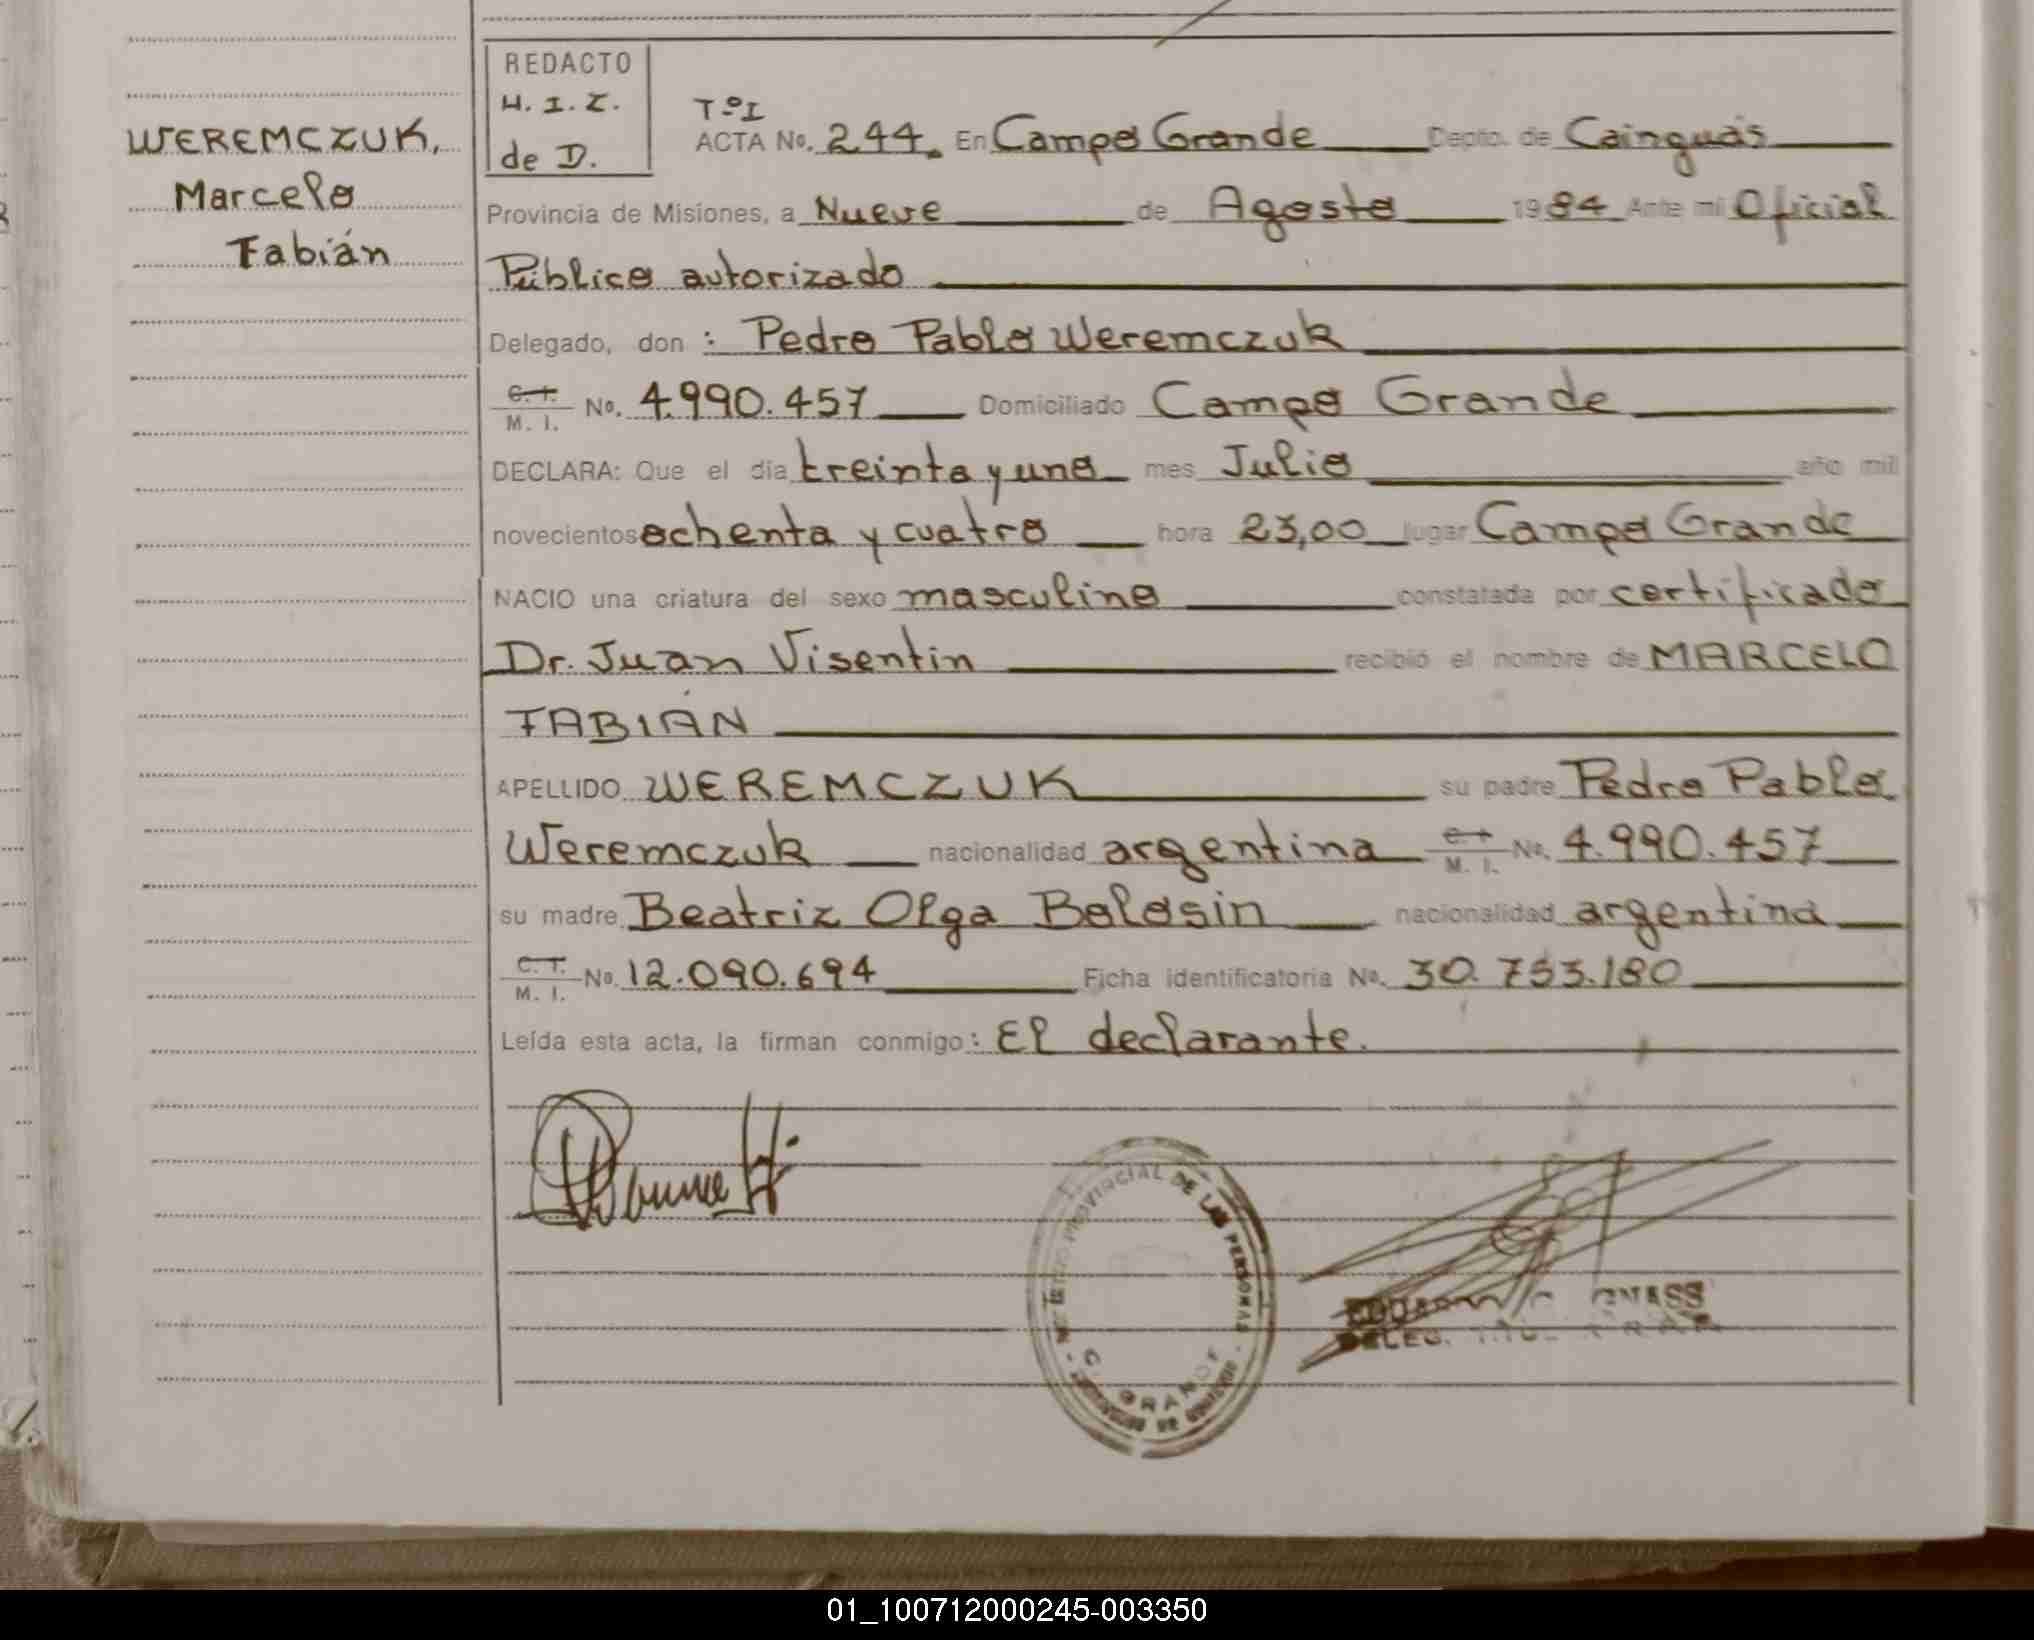 WEREMCZUK,
Marcelo
Fabián
REDACTO
H. I. Z.
de D.
TºI
ACTA No. 244. En Campo Grande Depto. de Cainguás
Provincia de Misiones, a Nueve de Agosto 1984 Ante mi Oficial
Público autorizado
Delegado, don : Pedro Pablo Weremczuk
C. I. M. I. No. 4.990.457 Domiciliado Campo Grande
DECLARA: Que el día treinta y uno mes Julio año mil
novecientos ochenta y cuatro hora 23,00 lugar Campo Grande
NACIO una criatura del sexo masculino constatada por certificado
Dr. Juan Visentin recibió el nombre de MARCELO
FABIÁN
APELLIDO WEREMCZUK su padre Pedro Pablo
Weremczuk nacionalidad argentina C. I. M. I. No. 4.990.457
su madre Beatriz Olga Bolosin nacionalidad argentina
C. I. M. I. No. 12.090.694 Ficha identificatoria No. 30.753.180
Leída esta acta, la firman conmigo: El declarante.
PROVINCIAL DE LAS PERSONAS
C. GRANDE
DELEG.
01_100712000245-003350